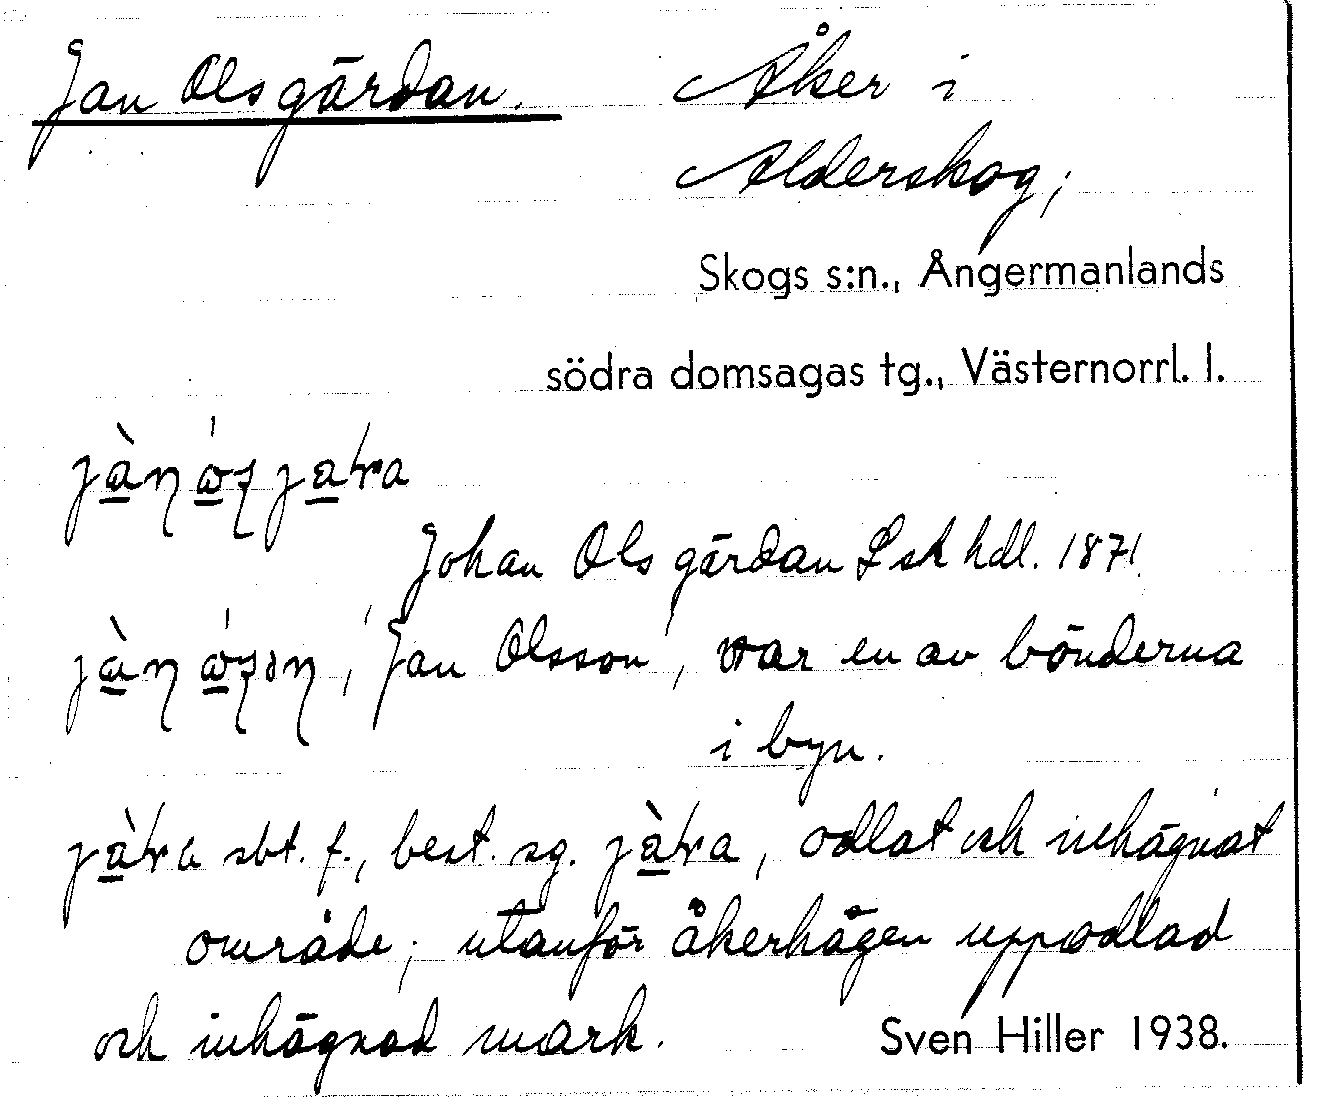 Jan Olsgärdan. Åker i
Alderskog,
Skogs s:n., Ångermanlands
södra domsagas tg., Västernorrl. l.
Johan Ols gärdan Lskhdl. 1871.
'Jan Olsson', var en av bönderna
i byn.
sbt. f., best. sg. , odlat och inhägnat
område; utanför åkerhägen uppodlad
och inhägnad mark. Sven Hiller 1938.